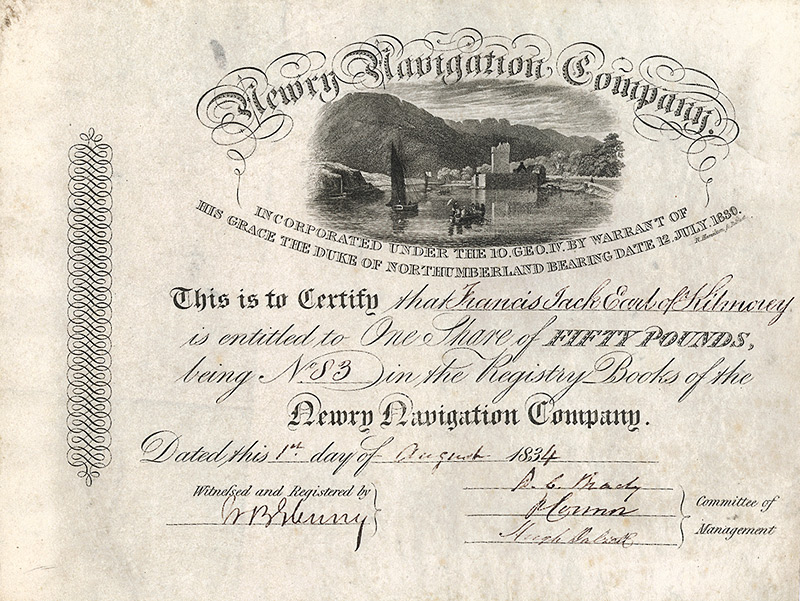 Newry Navigation Company.
INCORPORATED UNDER THE 10. GEO. IV. BY WARRANT OF
HIS GRACE THE DUKE OF NORTHUMBERLAND BEARING DATE 12. JULY. 1830.
This is to Certify that Francis Jack Earl of Kilmorey
is entitled to One Share of FIFTY POUNDS,
being No 83 in the Registry Books of the
Newry Navigation Company.
Dated this 1st day of August 1834
Witnessed and Registered by
Committee of
Management